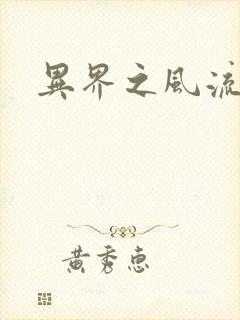 異界之風流
黃秀惠